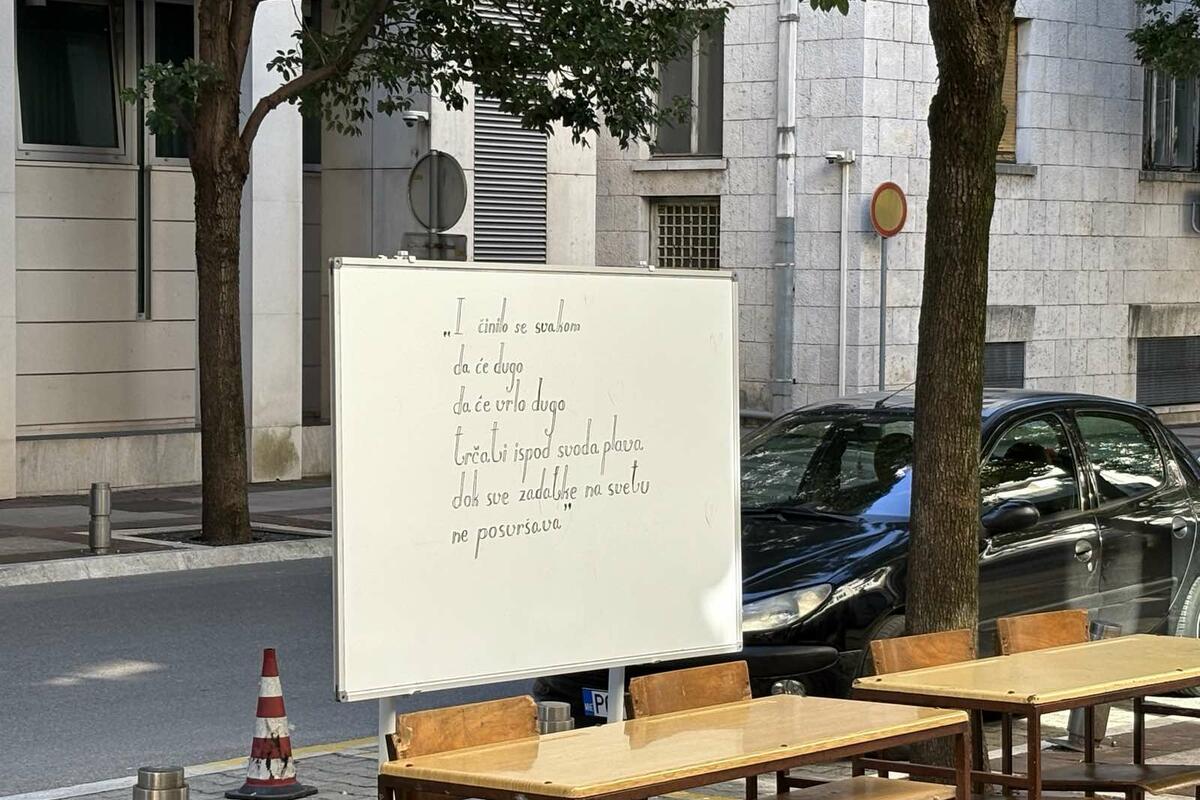 „I činilo se svakom
da će dugo
da će vrlo dugo
trčati ispod svoda plava
dok sve zadatke na svetu
ne posvršava”
PG